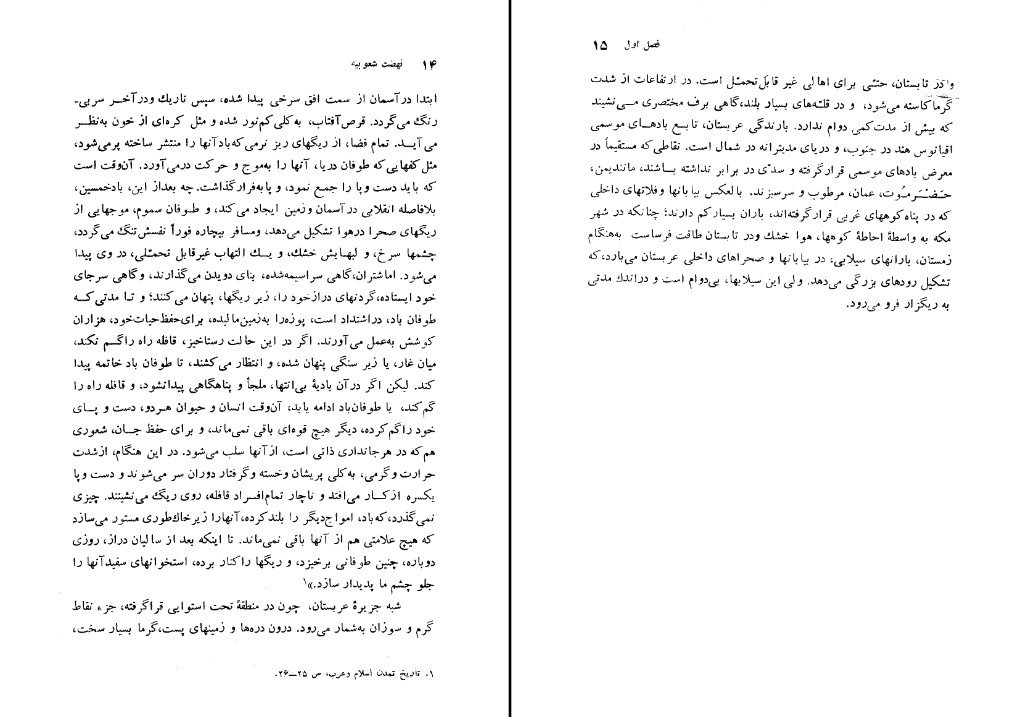 ۱۴ نهضت شعوبیه
ابتدا در آسمان از سمت افق سرخی پیدا شده، سپس تاریك ودرآخـر سربی-
رنگ می‌گردد. قرص‌آفتاب، به‌کلی‌کم‌نور شده و مثل کره‌ای از خون به‌نظـر
می‌آیـد. تمام فضا، از ریگهای ریز نرمی‌که‌بادآنها را منتشر ساخته پرمی‌شود،
مثل کفهایی که طوفان دریا، آنها را به‌موج و حرکت درمی‌آورد. آن‌وقت است
که باید دست وپا را جمع نمود، و پابه‌فرارگذاشت. چه بعداز این، بادخمسین،
بلافاصله انقلابی درآسمان وزمین ایجاد می‌کند، و طـوفان سموم، موجهایی از
ریگهای صحرا درهوا تشکیل می‌دهد، ومسافر بیچاره فوراً نفسش‌تنگ می‌گردد،
چشمها سرخ، و لبهـایش خشك، و یـك التهاب غیرقابل تحمـّلی، در وی پیدا
می‌شود. اماشتران،گاهی سراسیمه‌شده، بنای دویدن می‌گذارند، وگاهی سرجای
خود ایستاده،گردنهای درازخود را، زیر ریگها، پنهان می‌کنند؛ و تـا مدتی‌کـه
طوفان باد، دراشتداد است، پوزه‌را به‌زمین‌مالیده، برای‌حفظ‌حیات‌خود، هزاران
کوشش به‌عمل می‌آورند. اگر در این حالت رستاخیز، قافله راه راگـم نکند،
میان غار، یا زیر سنگی پنهان شده، و انتظار می‌کشند، تا طوفان باد خاتمه پیدا
کند. لیکن اگر درآن بادیهٔ بی‌انتها، ملجأ و پناهگاهی پیدانشود، و قافله راه را
گم‌کند، یا طوفان‌باد ادامه یابد، آن‌وقت انسان و حیوان هـردو، دست و پـای
خود راگم‌کرده، دیگر هیچ قوه‌ای باقی نمی‌ماند، و برای حفظ جـان، شعوری
هم‌که در هرجانداری ذاتی است، ازآنها سلب می‌شود. در این هنگام، ازشدت
حرارت وگرمی، به‌کلی پریشان وخسته وگرفتار دوران سر می‌شوند و دست وپا
یکسره ازکـار می‌افتد و ناچار تمام‌افـراد قافله، روی ریگ می‌نشینند. چیزی
نمی‌گذرد،که‌باد، امواج‌دیگر را بلندکرده،آنهارا زیرخاك‌طوری مستور می‌سازد
که هیچ علامتی هم از آنها باقی نمی‌ماند. تا اینکه بعد از سالیان دراز، روزی
دوباره، چنین طوفانی برخیزد، و ریگها راکنار برده، استخوانهای سفیدآنها را
جلو چشم ما پدیدار سازد.»۱
شبه جزیرهٔ عربستان، چون در منطقهٔ تحت استوایی قراگرفته، جزء نقاط
گرم و سوزان به‌شمار می‌رود. درون دره‌ها و زمینهای پست،گرما بسیار سخت،
۱. تاریخ تمدن اسلام وعرب، س ۲۵—۲۶.
فصل اول ۱۵
تابستان، حتـّی برای اهالی غیر قابل‌تحمـّل است. در ارتفاعات از شدت
گرماکاسته می‌شود، و در قلـّه‌های بسیار بلند،گاهی برف مختصری مـی‌نشیند
که بیش از مدت‌کمی دوام ندارد. بارندگی عربستان، تابـع بادهـای موسمی
اقیانوس هند در جنوب، و دریای مدیترانه در شمال است. نقاطی‌که مستقیماً در
معرض بادهای موسمی قرارگرفته و سدّی در برابر نداشته بـاشند، مانندیمن،
حَضْرَموت، عمان، مرطوب و سرسبزند. بالعکس بیابانها وفلاتهای داخلی
که در پناه‌کوههای غربی قرارگرفته‌اند، باران بسیارکم دارند؛ چنانکه در شهر
مکه به واسطهٔ احاطهٔ کوهها، هوا خشك ودر تابستان طاقت فرساست به‌هنگام
زمستان، بارانهای سیلابی، در بیابانها و صحراهای داخلی عربستان می‌بارد،که
تشکیل رودهای بزرگی می‌دهد. ولی این سیلابها، بی‌دوام است و دراندك مدتی
به ریگزار فرو می‌رود.